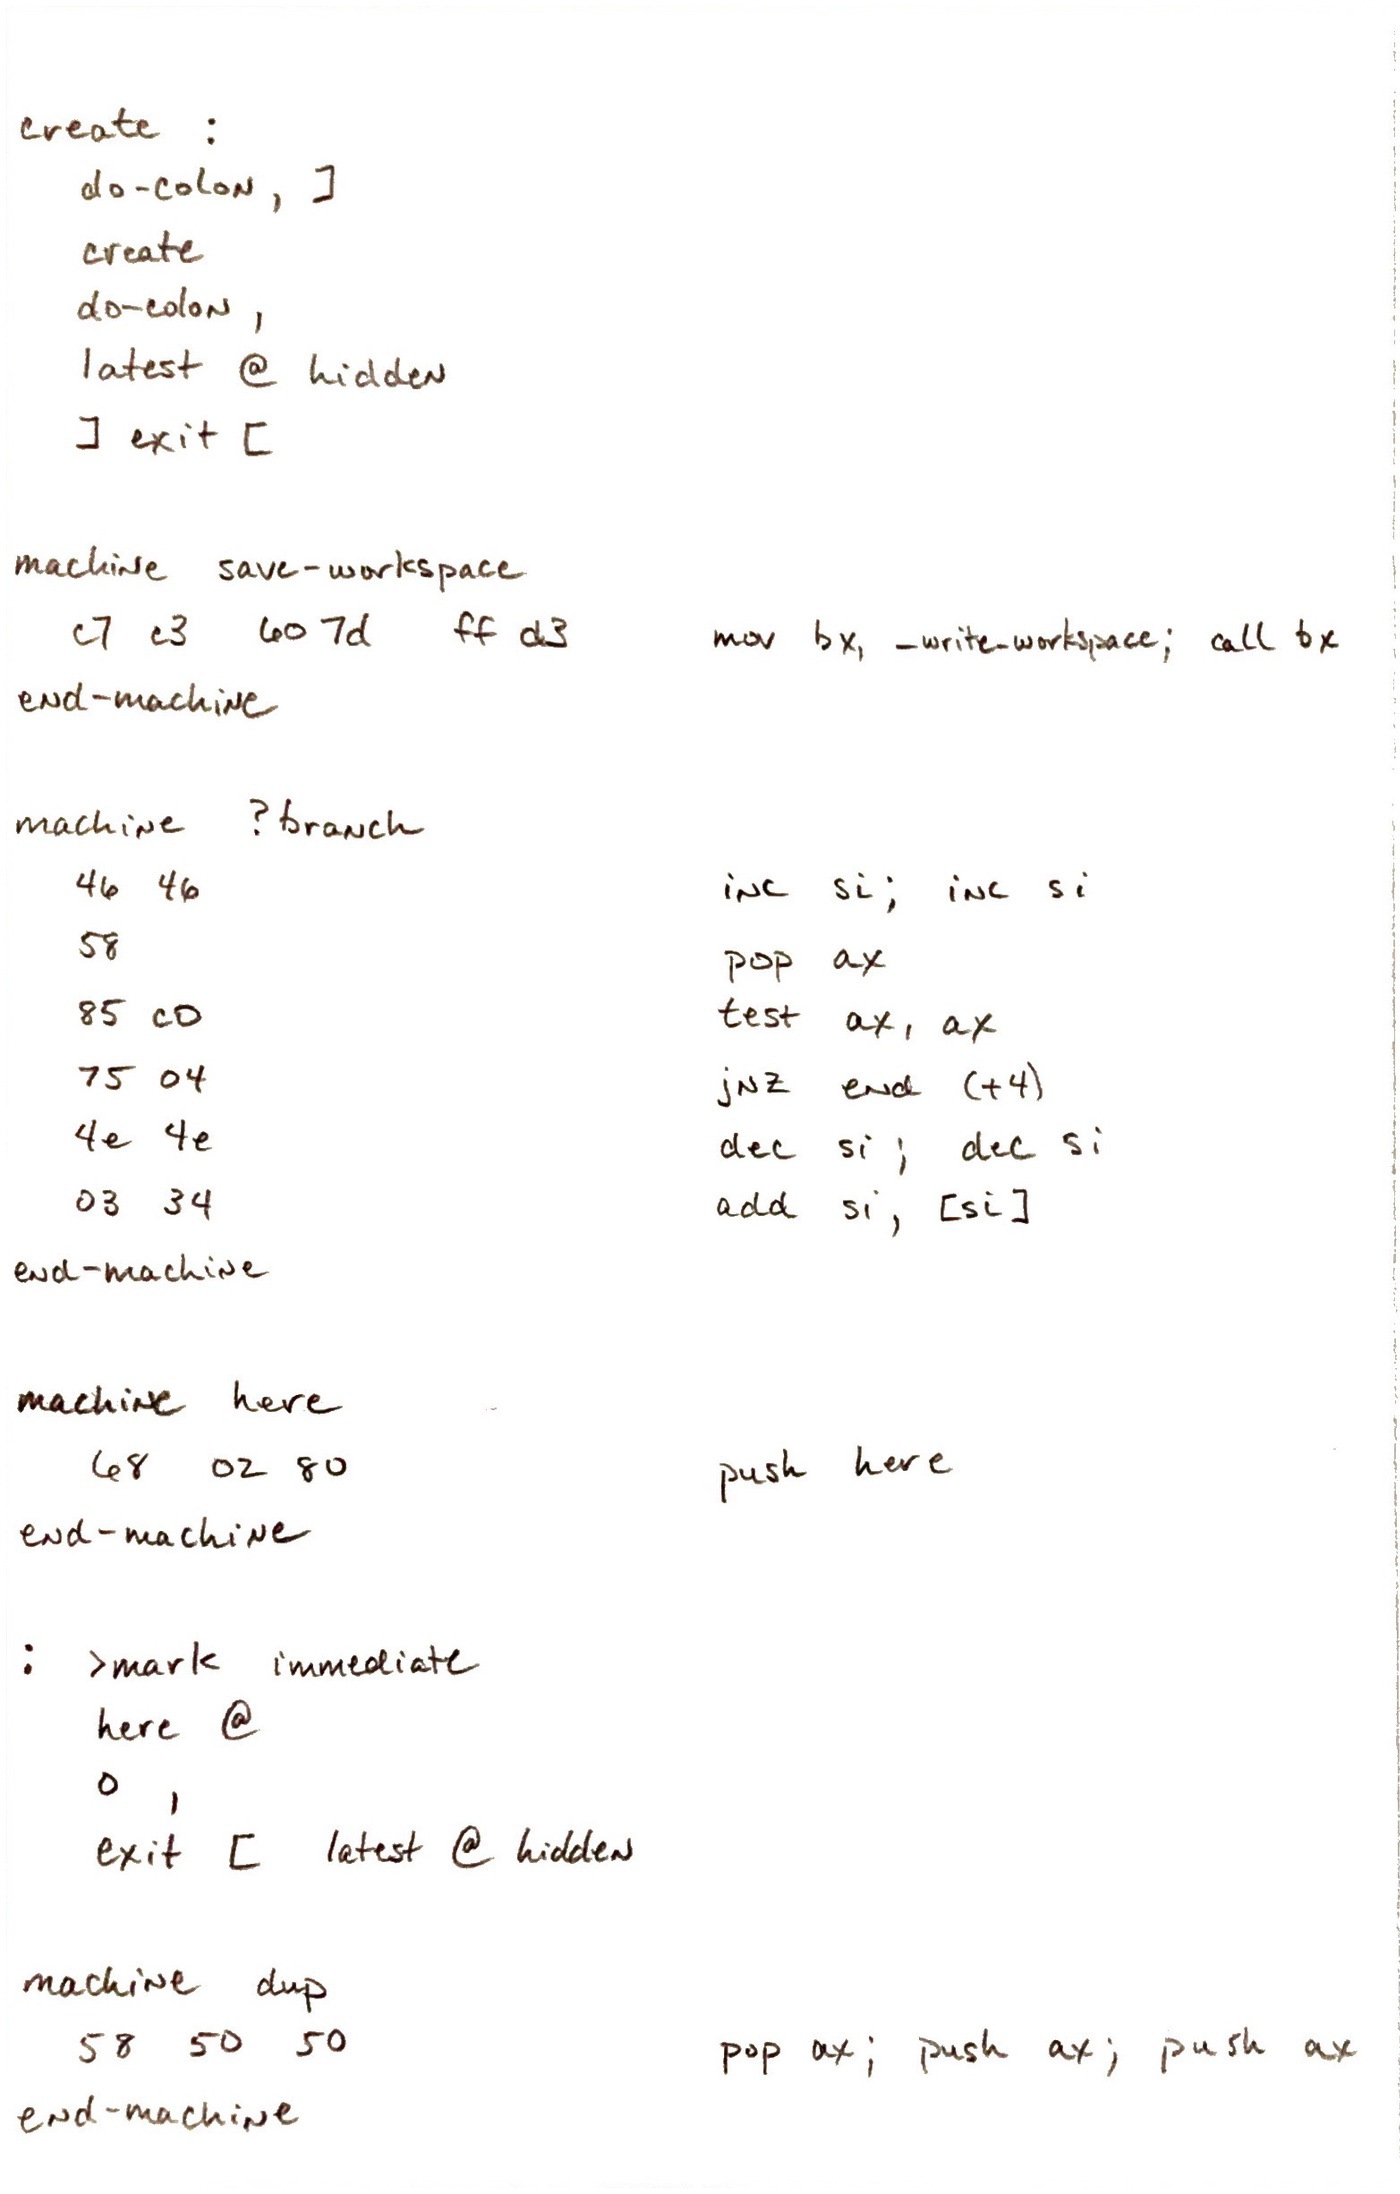 create :
do-colon, ]
create
do-colon ,
latest @ hidden
] exit [
machine save-workspace
c7 c3 60 7d ff d3 mov bx, _write_workspace; call bx
end-machine
machine ?branch
46 46 inc si; inc si
58 pop ax
85 c0 test ax, ax
75 04 jnz end (+4)
4e 4e dec si; dec si
03 34 add si, [si]
end-machine
machine here
68 02 80 push here
end-machine
: >mark immediate
here @
0 ,
exit [ latest @ hidden
machine dup
58 50 50 pop ax; push ax; push ax
end-machine